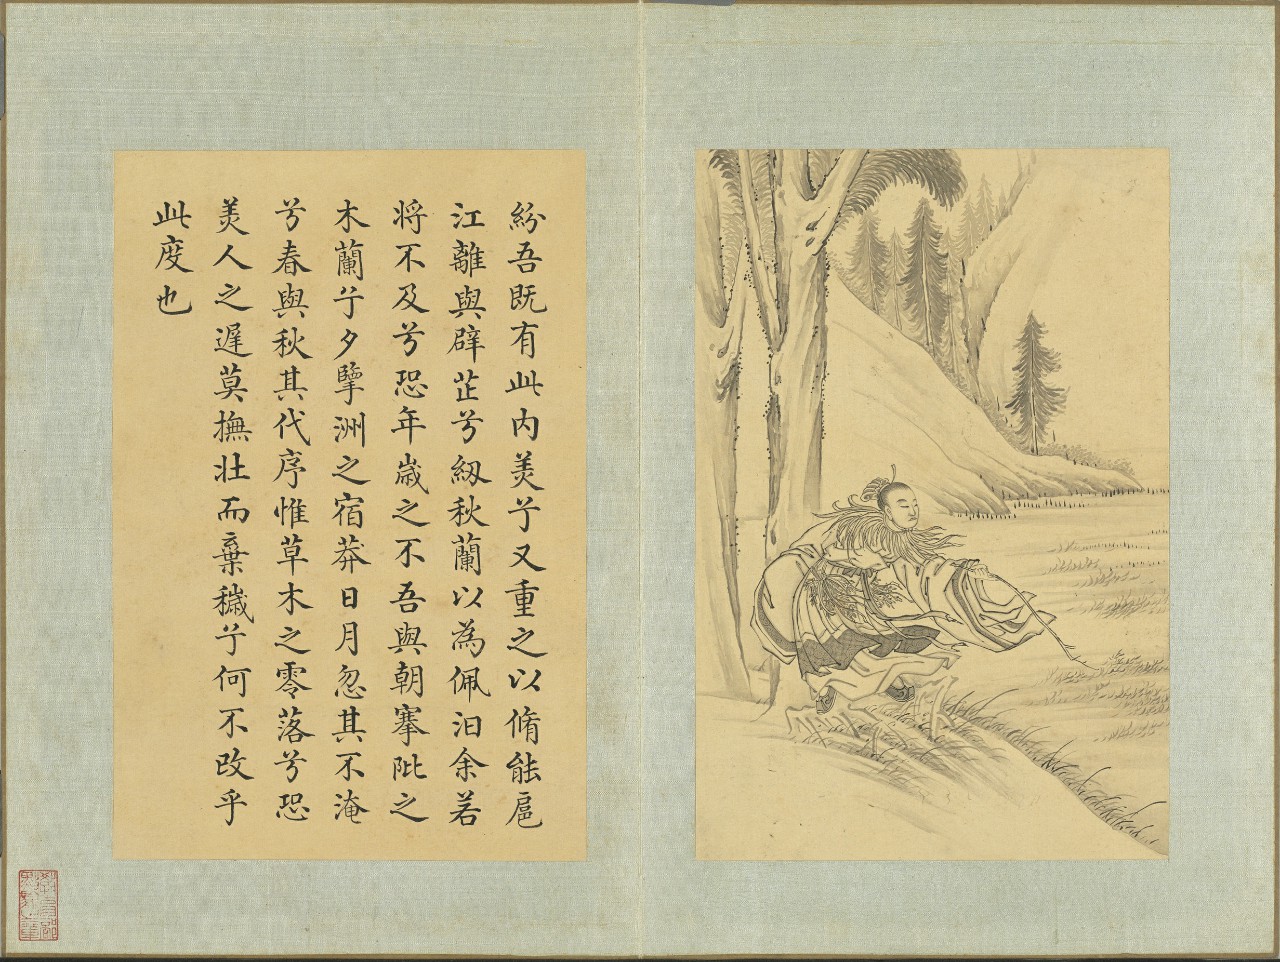 紛吾既有此内美兮又重之以脩能扈
江離與辟芷兮紉秋蘭以為佩汩余若
将不及兮恐年嵗之不吾與朝搴阰之
木蘭兮夕擥洲之宿莽日月忽其不淹
兮春與秋其代序惟草木之零落兮恐
美人之遲莫撫壯而棄穢兮何不改乎
此度也